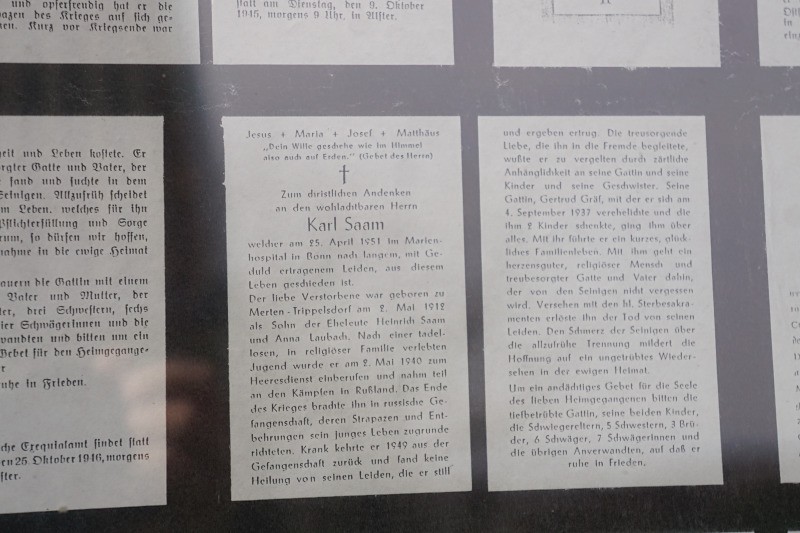 und opferfreudig hat er die
des Krieges auf sich ge-
Kurz vor Kriegsende war
statt am Dienstag, den 9. Oktober
1945, morgens 9 Uhr, in Alfter.
und Leben kostete. Er
Gatte und Vater, der
fand und suchte in dem
Seinigen. Allzufrüh scheidet
Leben, welches für ihn
Pflichterfüllung und Sorge
so dürfen wir hoffen,
in die ewige Heimat
die Gattin mit einem
Vater und Mutter, der
drei Schwestern, sechs
Schwägerinnen und die
und bitten um ein
Gebet für den Heimgegange-
r
ruhe in Frieden.
Exequialamt findet statt
den 25. Oktober 1946, morgens
Jesus + Maria + Josef + Matthäus
„Dein Wille geschehe wie im Himmel
also auch auf Erden." (Gebet des Herrn)
Zum christlichen Andenken
an den wohlachtbaren Herrn
Karl Saam
welcher am 25. April 1951 im Marien-
hospital in Bonn nach langem, mit Ge-
duld ertragenem Leiden, aus diesem
Leben geschieden ist.
Der liebe Verstorbene war geboren zu
Merten-Trippelsdorf am 2. Mai 1912
als Sohn der Eheleute Heinrich Saam
und Anna Laubach. Nach einer tadel-
losen, in religiöser Familie verlebten
Jugend wurde er am 2. Mai 1940 zum
Heeresdienst einberufen und nahm teil
an den Kämpfen in Rußland. Das Ende
des Krieges brachte ihn in russische Ge-
fangenschaft, deren Strapazen und Ent-
behrungen sein junges Leben zugrunde
richteten. Krank kehrte er 1949 aus der
Gefangenschaft zurück und fand keine
Heilung von seinen Leiden, die er still
und ergeben ertrug. Die treusorgende
Liebe, die ihn in die Fremde begleitete,
wußte er zu vergelten durch zärtliche
Anhänglichkeit an seine Gattin und seine
Kinder und seine Geschwister. Seine
Gattin, Gertrud Gräf, mit der er sich am
4. September 1937 verehelichte und die
ihm 2 Kinder schenkte, ging ihm über
alles. Mit ihr führte er ein kurzes, glück-
liches Familienleben. Mit ihm geht ein
herzensguter, religiöser Mensch und
treubesorgter Gatte und Vater dahin,
der von den Seinigen nicht vergessen
wird. Versehen mit den hl. Sterbesakra-
menten erlöste ihn der Tod von seinen
Leiden. Den Schmerz der Seinigen über
die allzufrühe Trennung mildert die
Hoffnung auf ein ungetrübtes Wieder-
sehen in der ewigen Heimat.
Um ein andächtiges Gebet für die Seele
des lieben Heimgegangenen bitten die
tiefbetrübte Gattin, seine beiden Kinder,
die Schwiegereltern, 5 Schwestern, 3 Brü-
der, 6 Schwäger, 7 Schwägerinnen und
die übrigen Anverwandten, auf daß er
ruhe in Frieden.